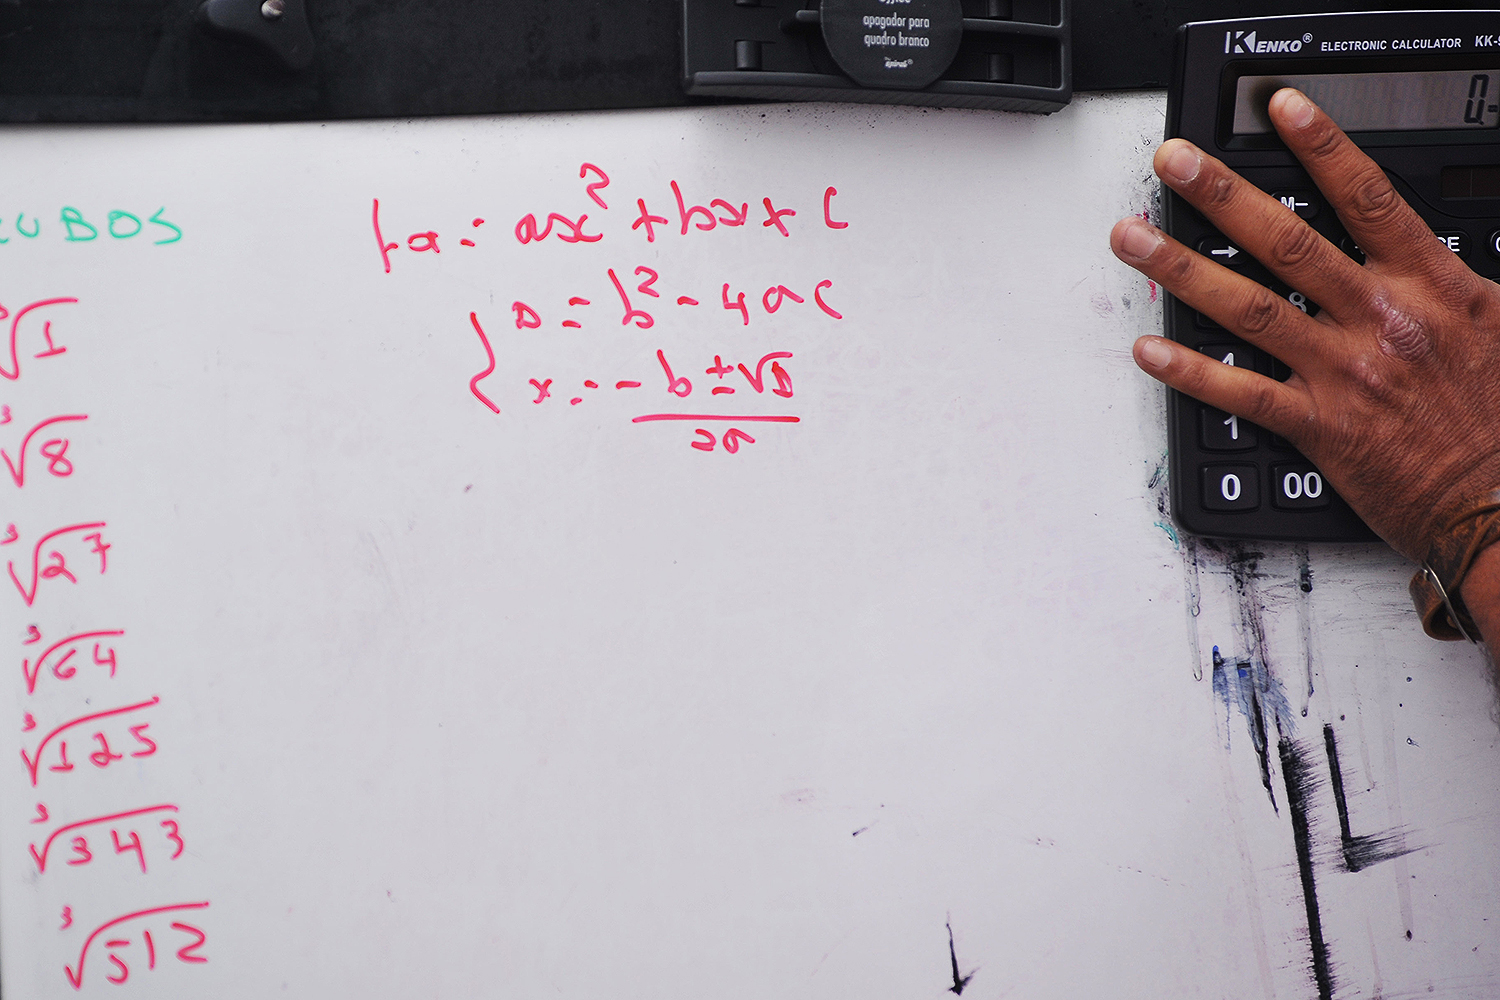 apagador para
quadro branco
KENKO® ELECTRONIC CALCULATOR KK-9
0.
M-
→
CE
8
1
0 00
CUBOS
∛1
∛8
∛27
∛64
∛125
∛343
∛512
ax² + bx + c
Δ = b² - 4ac
x = -b ± √Δ
2a